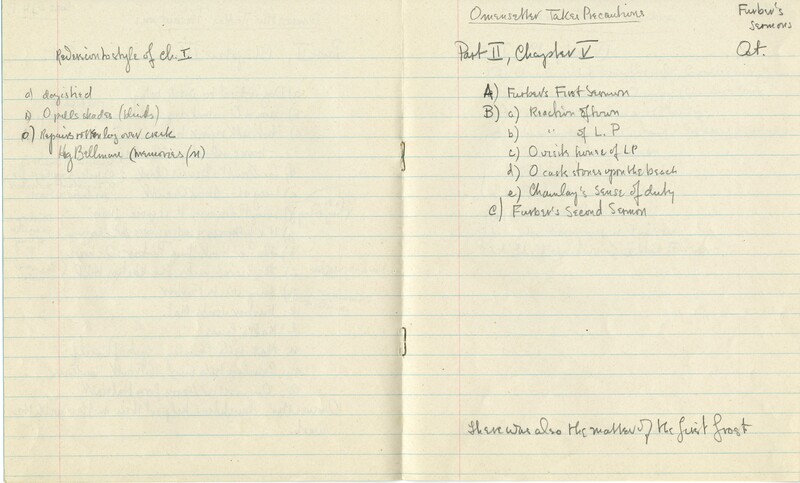 Reversion to style of Ch. I
a) dog is tied
b) O pulls shades (blinds)
c) Repairs rotten log over creek
Hog Bellmore (memories/n)
Omensetter Takes Precautions
Furber's
Sermons
Part II, Chapter V
Oct.
A) Furber's First Sermon
B) a) Reaction of town
b) " of L. P
c) O visits house of LP
d) O casts stones upon the beach
e) Chamlay's Sense of duty
C) Furber's Second Sermon
There was also the matter of the first frost